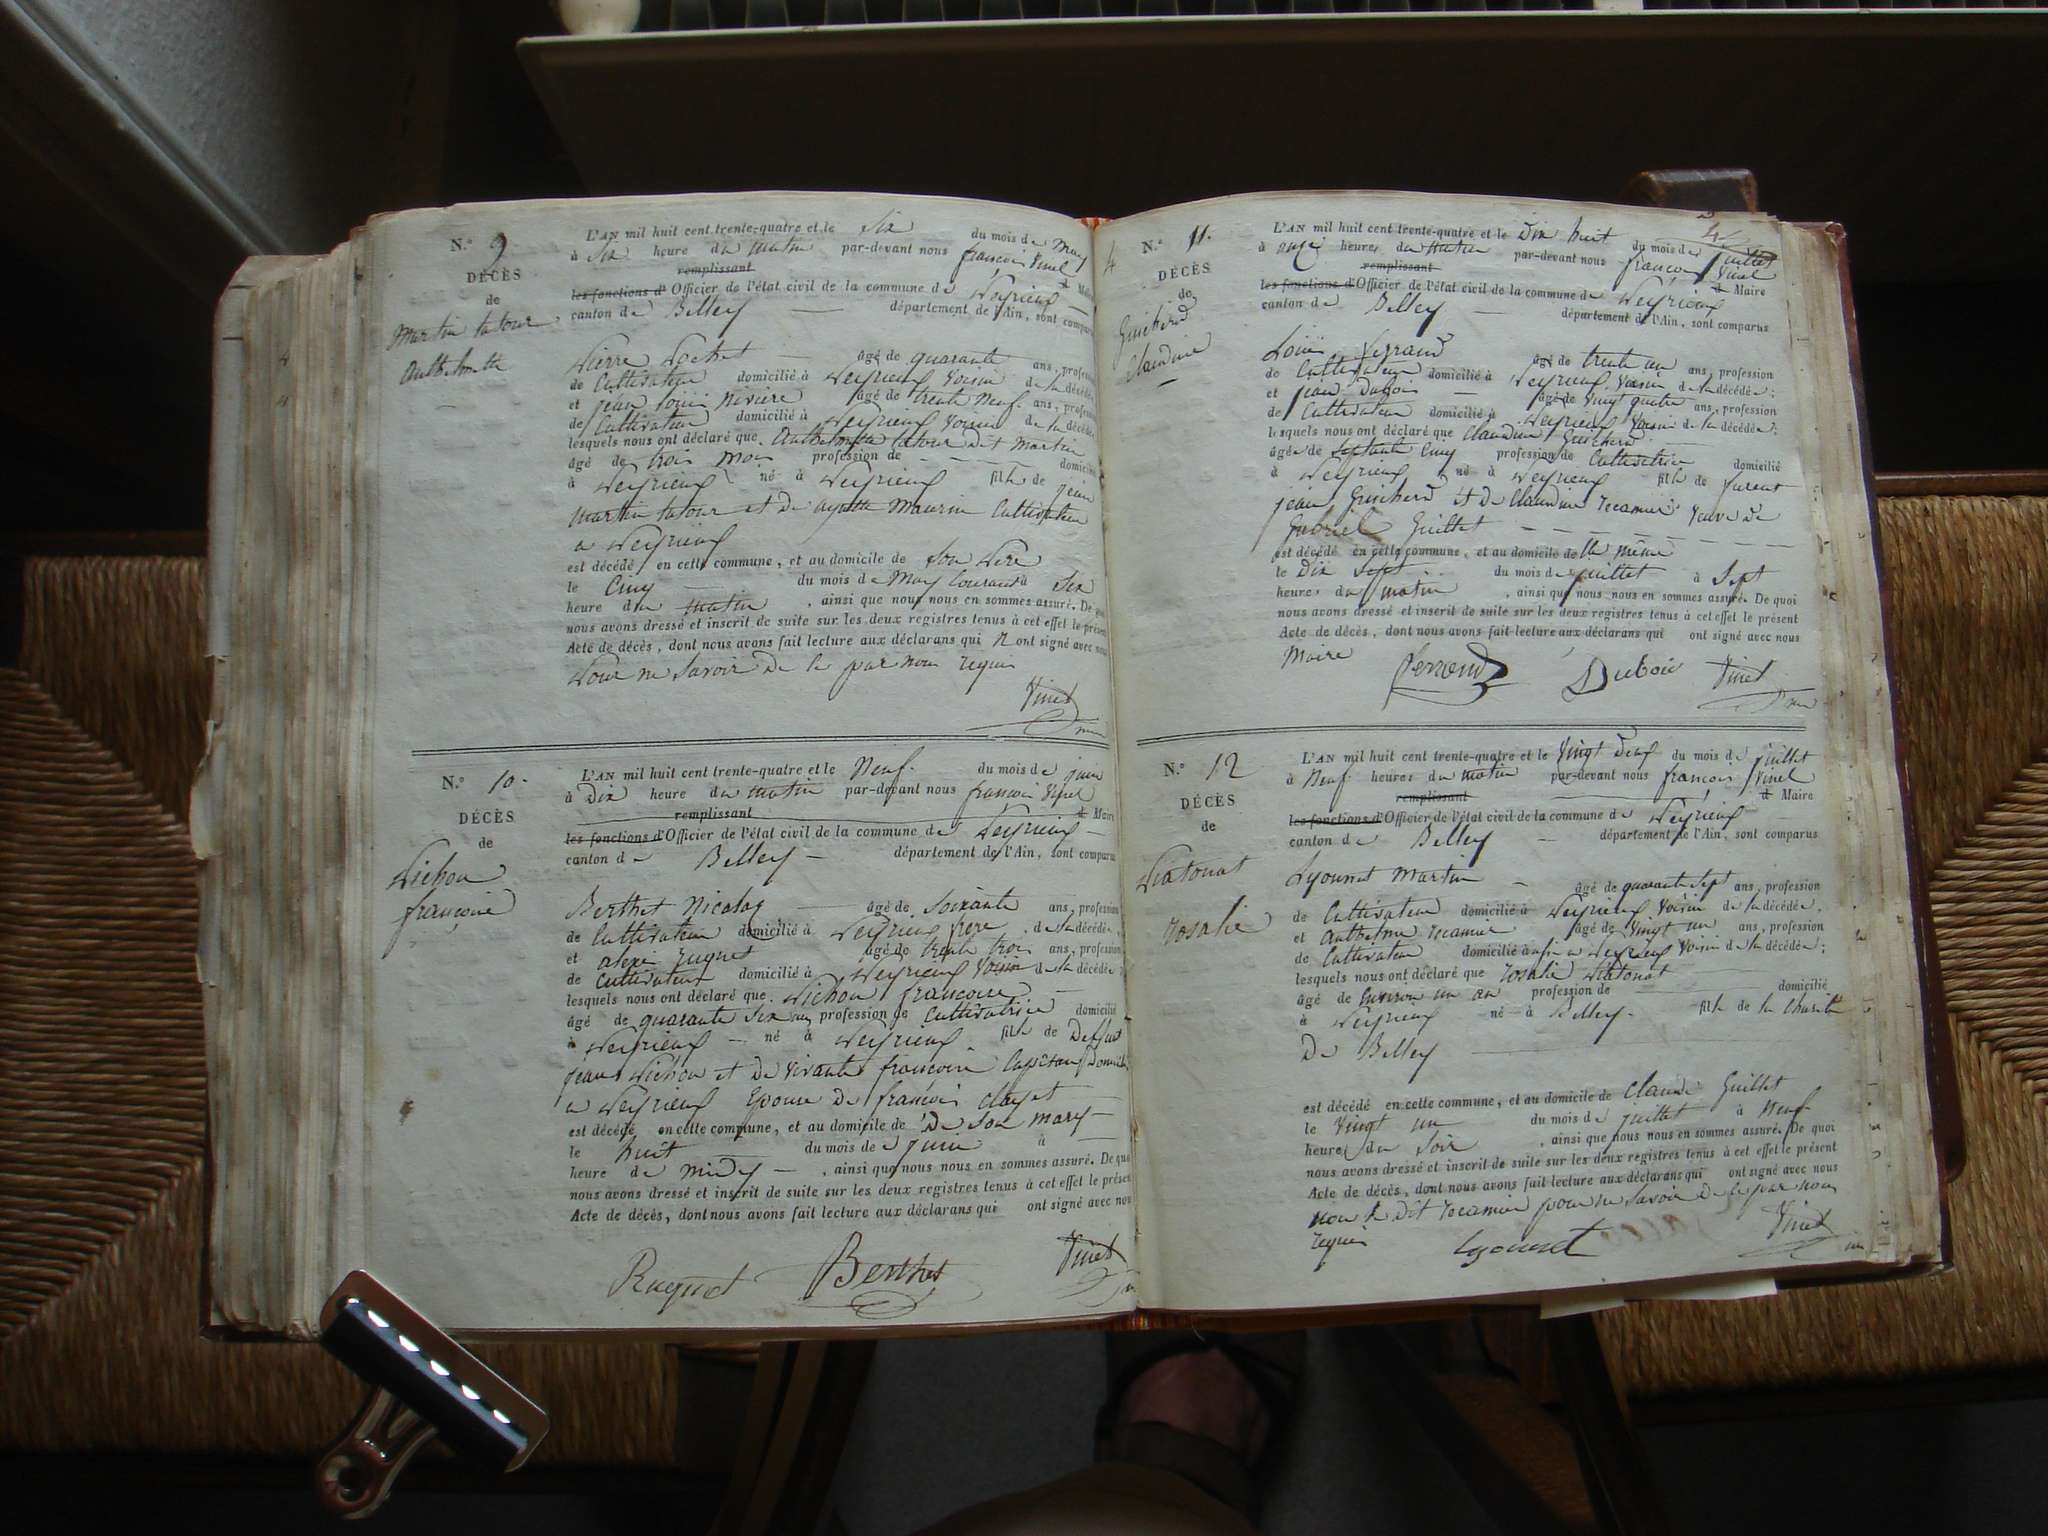 N.° 9
DÉCÈS
de
Martin latour
Anthelmette
L'AN mil huit cent trente-quatre et le six du mois de May
à six heure du matin par-devant nous françois Vinet
remplissant d Maire
les fonctions d'Officier de l'état civil de la commune de Peyrieux
canton de Belley département de l'Ain, sont comparus
Pierre Pochet âgé de quarante ans, profession
de Cultivateur domicilié à Peyrieux voisin de la décédée
et jean louis Rivière âgé de trente Neuf ans, profession
de Cultivateur domicilié à Peyrieux voisin de la décédée
lesquels nous ont déclaré que Anthelmette latour dit Martin
âgé de trois mois profession de domicilié
à Peyrieux né à Peyrieux fille de jean
Martin latour et de Maurin Cultivateur
a Peyrieux
est décédé en cette commune, et au domicile de son Père
le Cinq du mois de May Courant à six
heure du matin, ainsi que nous nous en sommes assuré. De quoi
nous avons dressé et inscrit de suite sur les deux registres tenus à cet effet le présent
Acte de décès, dont nous avons fait lecture aux déclarans qui n ont signé avec nous
Pour ne savoir de ce par nous requis
Vinet
N.° 10
DÉCÈS
de
Pichon
françoise
L'AN mil huit cent trente-quatre et le Neuf du mois de juin
à Dix heure du matin par-devant nous françois Vinet
remplissant d Maire
les fonctions d'Officier de l'état civil de la commune de Peyrieux
canton de Belley département de l'Ain, sont comparus
Berthet Nicolas âgé de soixante ans, profession
de Cultivateur domicilié à Peyrieux de la décédée,
et Ruquet âgé de trente trois ans, profession
de Cultivateur domicilié à Peyrieux voisin de la décédée;
lesquels nous ont déclaré que Pichon françoise
âgé de quarante six ans profession de Cultivatrice domicilié
à Peyrieux né à Peyrieux fille de Deffunt
jean Pichon et de vivante françoise domicilié
a Peyrieux Epouse de françois Clayet
est décédé en cette commune, et au domicile de De son mary
le huit du mois de juin à
heure de midy, ainsi que nous nous en sommes assuré. De quoi
nous avons dressé et inscrit de suite sur les deux registres tenus à cet effet le présent
Acte de décès, dont nous avons fait lecture aux déclarans qui ont signé avec nous
Ruquet Berthet Vinet
4
N.° 11.
DÉCÈS
de
Guicherd
Claudine
L'AN mil huit cent trente-quatre et le Dix huit du mois de juillet
à onze heures du matin par-devant nous françois Vinet
remplissant d Maire
les fonctions d'Officier de l'état civil de la commune de Peyrieux
canton de Belley département de l'Ain, sont comparus
Louis Perrand âgé de trente un ans, profession
de Cultivateur domicilié à Peyrieux, voisin de la décédée;
et jean Dubois âgé de vingt quatre ans, profession
de Cultivateur domicilié à Peyrieux voisin de la décédée;
lesquels nous ont déclaré que Claudine Guicherd
âgée de septante Cinq profession de Cultivatrice domicilié
à Peyrieux né à Peyrieux fille de furent
jean Guicherd et de Claudine recamier veuve de
Gabriel Guillet
est décédé en cette commune, et au domicile de lle même
le Dix sept du mois de juillet à sept
heures du matin, ainsi que nous nous en sommes assuré. De quoi
nous avons dressé et inscrit de suite sur les deux registres tenus à cet effet le présent
Acte de décès, dont nous avons fait lecture aux déclarans qui ont signé avec nous
Maire Perrand Dubois Vinet
N.° 12
DÉCÈS
de
Piatonat
rosalie
L'AN mil huit cent trente-quatre et le vingt deux du mois de juillet
à Neuf heures du matin par-devant nous françois Vinet
remplissant d Maire
les fonctions d'Officier de l'état civil de la commune de Peyrieux
canton de Belley département de l'Ain, sont comparus
Lyonnet Martin âgé de quarante sept ans, profession
de Cultivateur domicilié à Peyrieux voisin de la décédée,
et Anthelme recamier âgé de vingt un ans, profession
de Cultivateur domicilié à aussi a Peyrieux voisin de la décédée;
lesquels nous ont déclaré que rosalie Piatonat
âgé de Environ un an profession de domicilié
à Peyrieux né à Belley fille de la Charité
De Belley
est décédé en cette commune, et au domicile de Claude Guillet
le vingt un du mois de juillet à Neuf
heures du soir, ainsi que nous nous en sommes assuré. De quoi
nous avons dressé et inscrit de suite sur les deux registres tenus à cet effet le présent
Acte de décès, dont nous avons fait lecture aux déclarans qui ont signé avec nous
non le dit recamier pour ne savoir de ce par nous
requis Lyonnet Vinet